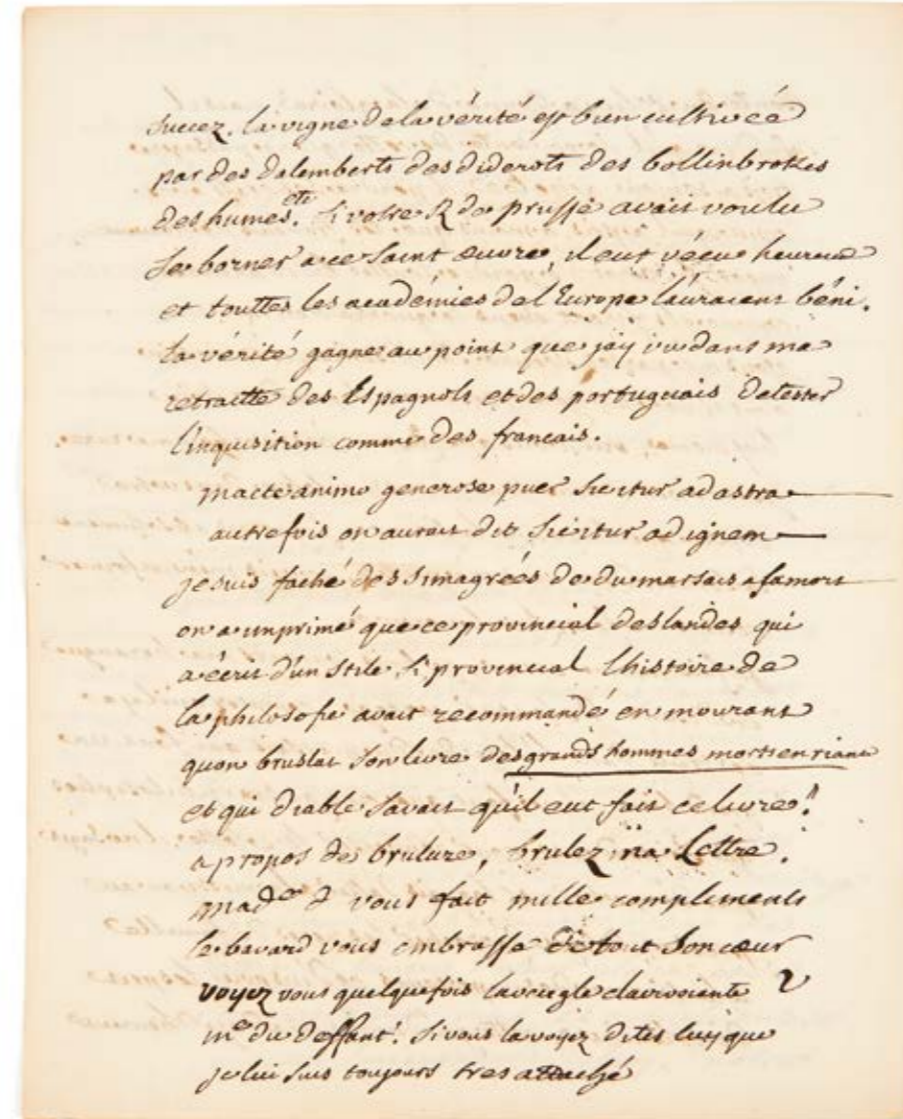 succez. la vigne de la vérité est bien cultivée
par des dalemberts des diderots des bollinbrokes
des humes etc. si votre R de prusse avait voulu
se borner a ce saint œuvre, il eut vécu heureux
et touttes les académies de l'Europe l'auraient béni.
la vérité gagne au point que j'ay vu dans ma
retraitte des Espagnols et des portuguais detester
l'inquisition comme des francais.
macte animo generose puer sic itur ad astra
autrefois on aurait dit sic itur ad ignem
je suis faché des simagrées de du marsais a sa mort
on a imprimé que ce provincial deslandes qui
a écrit d'un stile si provincial l'histoire de
la philosofie avait recommandé en mourant
quon bruslat son livre des grands hommes morts en riant
et qui diable savait qu'il eut fait ce livre?
a propos de brulure, brulez ma Lettre.
made d vous fait mille compliments
le bavard vous embrasse de tout son cœur
voyez vous quelquefois laveugle clairvoiante
me du deffant? si vous la voyez dites luy que
je lui suis toujours tres attaché